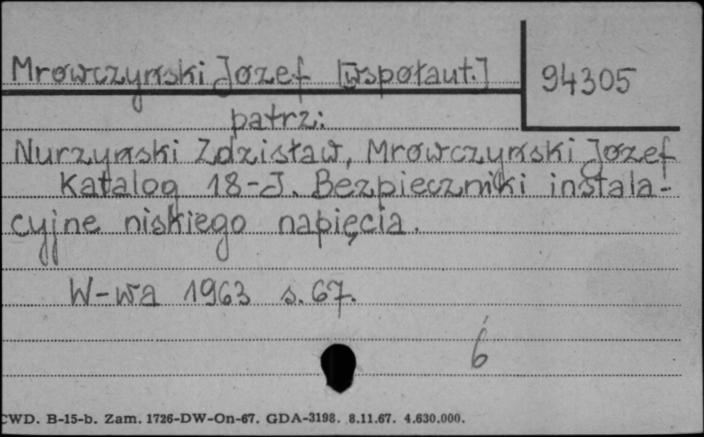 Mrowczyński Józef [współaut.]
94305
patrz:
Nurzyński Zdzisław, Mrowczyński Józef
Katalog 18-J. Bezpieczniki instala-
cyjne niskiego napięcia.
W-wa 1963 s. 67.
6
CWD. B-15-b. Zam. 1726-DW-On-67. GDA-3198. 8.11.67. 4.630.000.